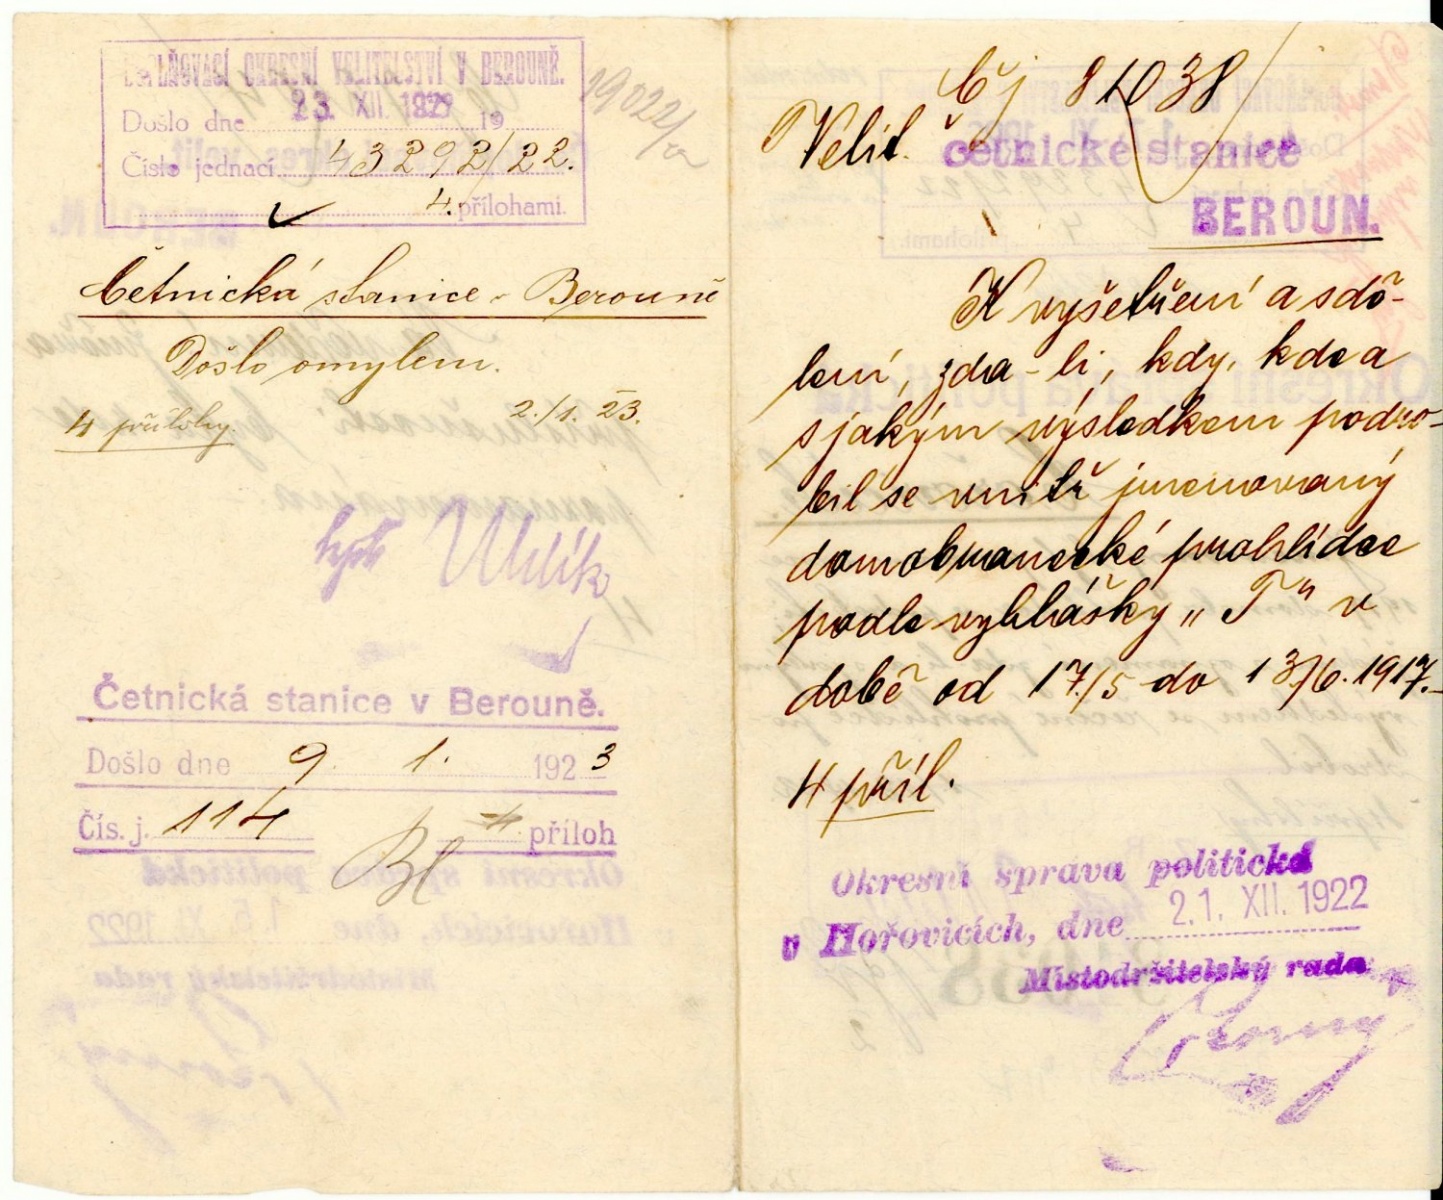 DOPLŇOVACÍ OKRESNÍ VELITELSTVÍ V BEROUNĚ.
23. XII. 1922
Došlo dne 19
Číslo jednací 43292/22.
4. přílohami.
19022/
Četnická stanice - Berouně
Došlo omylem.
2./1. 23.
4 přílohy.
Uhlík
Četnická stanice v Berouně.
Došlo dne 9. 1. 1923
Čís. j. 114 4 příloh
Čj 81038
Velit. četnické stanice
BEROUN.
K vyšetření a sdě-
lení, zda-li, kdy, kde a
s jakým výsledkem podro-
bil se vnitř jmenovaný
domobranecké prohlídce
podle vyhlášky „T" v
době od 17./5 do 13/6. 1917.-
4 příl.
Okresní správa politická
v Hořovicích, dne 21. XII. 1922
Místodržitelský rada